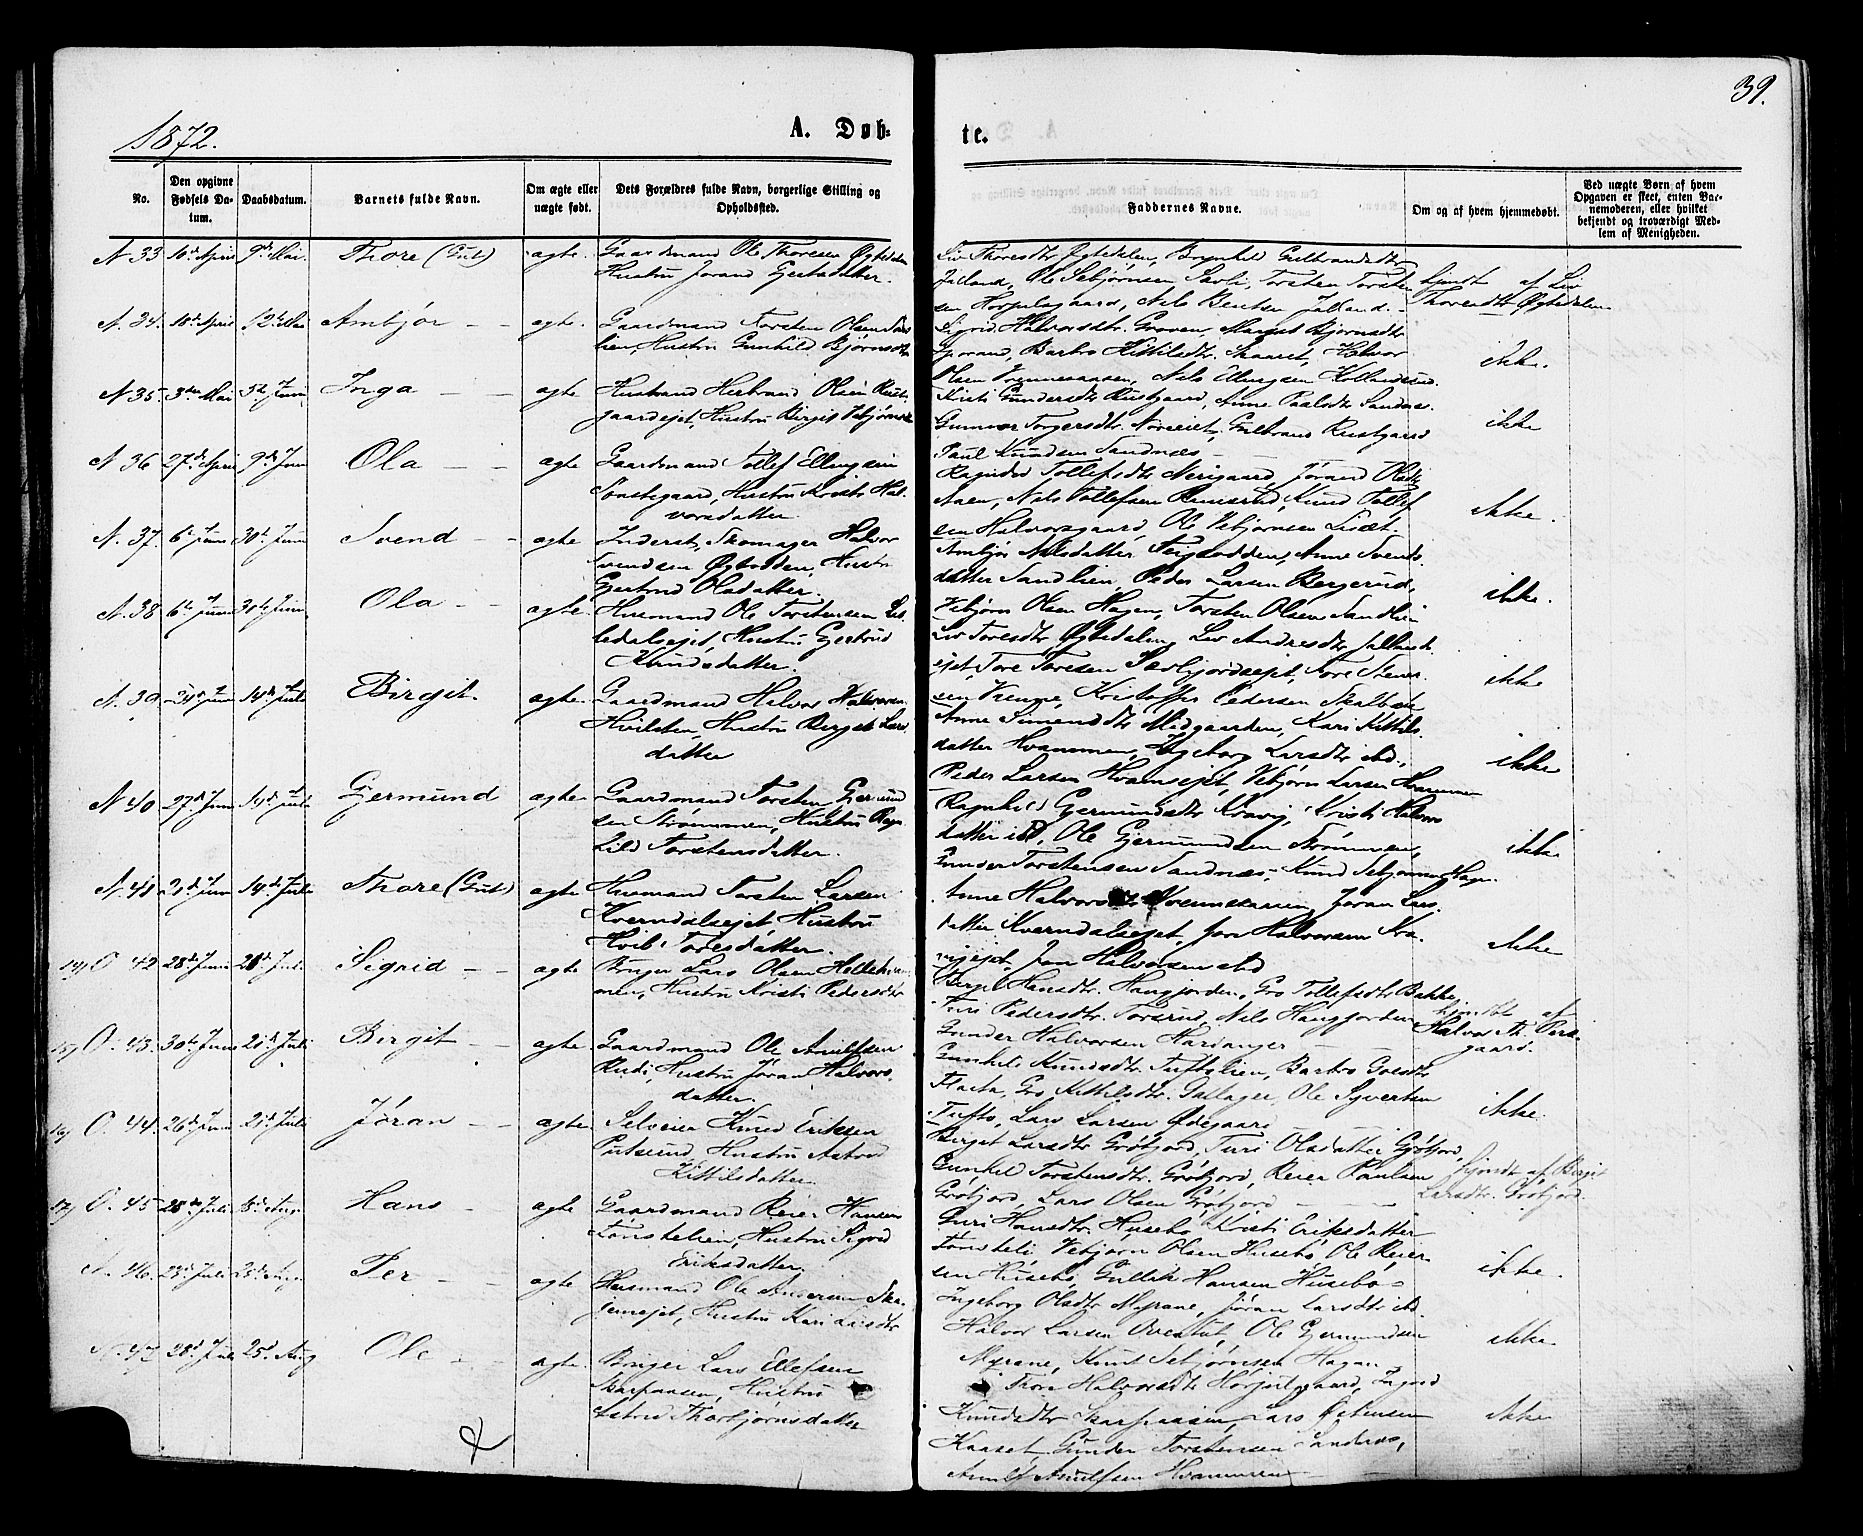 39.
1872.
A. Døb-
te.
No.
Den opgivne Fødsels Da-tum.
Daabsdatum.
Barnets fulde Navn.
Om ægte eller uægte født.
Dets Forældres fulde Navn, borgerlige Stilling og Opholdssted.
Faddernes Navne.
Om og af hvem hjemmedøbt.
Ved uægte Børn af hvem Opgaven er skeet, enten Bar-nemoderen, eller hvilket bekjendt og troværdigt Med-lem af Menigheden.
N 33 10de April 9de Mai. Thore (Gut) ægte.
Gaardmand Ole Thoresen Øgtedalen
Hustru Jørand Gertsdatter.
Liv Thoresdtr Øgtedalen, Brynhild Gulbrandsdtr
Jalland, Ole Sebjørnsen Torsten Torsten
sen Nils Bentsen Jalland.
hjemdt af Liv
Thoresdtr Øgtedalen
N. 34. 10de April 12te Mai Ambjør ægte.
Gaardmand Torsten Olsen Sand
lien, Hustru Gunhild Bjørnsdtr
Sigrid Halvorsdtr. Groven, Margit Bjørnsdtr
Barbro Kittilsdtr. Skaaret, Halvor
Olsen Nils Ellingsen
ikke.
N 35 3die Mai 5te Juni Inga ægte
Husmand Herbrand Olsen Rust-
gaardejet, Hustru Birgit Vebjørnsdtr
Kristi Gundersdtr Rustgaard, Anne Paalsdtr Sandnæs.
Gunvor Torgersdtr. Gulbrand Rustgaard
Paul Knudsen Sandnæs
ikke
N 36 27de April 9de Juni Ola ægte
Gaardmand Tollef Ellingsen
Tonstegaard, Hustru Kristi Hal-
vorsdatter
Ragnhild Tollefsdtr Nerigaard, Jørand Olsdtr
Aaen, Nils Tollefsen Knud Tollef
sen Halvorsgaard, Ole Vebjørnsen
Ikke.
N. 37. 6te Juni 30te Juni Svend ægte
Inderst, Skomager Halvor
Svendsen Hustru
Gjertrud Olsdatter.
Ambjør Nilsdatter Anne Svends
datter Sandlien, Peder Larsen Bergerud,
Vebjørn Olsen Hagen, Torsten Olsen Sandlien
ikke.
N. 38 6te Juni 30te Juni Ola ægte.
Husmand Ole Torstensen
Hustru Gjertrud
Knudsdatter.
Liv Toresdtr Øgtedalen, Liv Andresdtr
ejet, Tore Toresen Tore Steners
sen Vrenne, Kristoffer Pedersen
ikke
N. 39 24de Juni 14de Juli Birgit. ægte.
Gaardmand Halvor Halvorsen
Hustru Birgit Lars
datter
Anne Simendtr Midgaarden, Kari Kittils
datter Hvammen, Ingeborg Larsdtr ibd.,
Peder Larsen Hvamsejet, Vebjørn Larsen Hvammen
ikke
N 40 27de Juni 14de Juli Gjermund ægte.
Gaardmand Torsten Germund
sen Strømmen, Hustru Ragn
hild Torstensdatter.
Ragnhild Gjermundsdtr Kravig, Kristi Halvors
datter ibd, Ole Gjermundsen Strømmen,
Gunder Torstensen Sandnæs - Knud Sebjørnsen Hagen.
ikke
N. 41 Juni 14de Juli Thore (Gut) ægte
Husmand Torsten Larsen
Kverndalsejet Hustru
Toresdatter.
Anne Halvorsdtr Jøran Lars
datter Kverndalsejet, Jon Halvorsen Kra-
vigejet, Jon Halvorsen ibd
Ikke
14) O 42 28de Juni Juli Sigrid ægte
Bruger Lars Olsen
men, Hustru Kristi Pedersdtr
Birgit Hansdtr. Haugjorden, Gro Tollefsdtr Bakke,
Turi Pedersdtr. Torsrud, Nils Haugjorden
Gunder Halvorsen Hardanger
hjemdt af
Halvor Th.
gaard.
15) O. 43. 30te Juni Juli Birgit ægte.
Gaardmand Ole Arnulfsen
Rudi, Hustru Jøran Halvors
datter.
Gunhild Knudsdtr Tuftelien, Barbro
Gro Kittilsdtr. Ole Syvertsen
Tufto, Lars Larsen Ødegaard
ikke
16) O. 44. 26de Juni 21de Juli Jøran ægte
Selveier Knud Eriksen
Hustru Astrid
Kittilsdatter.
Birget Larsdtr Grøtfjord, Turi Olsdatter Grøtfjord,
Gunhild Torstensdtr. Grøtfjord, Reier Paulsen
Grøtfjord, Lars Olsen Grøtfjord
hjemdt af Birgit
Larsdtr. Grøtfjord.
17) O. 45 28de Juli Aug. Hans ægte
Gaardmand Reier Hansen
Tønshelien, Hustru Sigrid
Eriksdatter.
Guri Hansdtr. Husebø, Kristi Eriksdatter
Tønsheli, Vebjørn Olsen Husebø, Ole Reier
sen Husebø, Gullik Hansen Husebø.
ikke.
N. 46. 23de Juli Aug. Per ægte
Husmand Ole Andersen
Hustru Kari Larsdtr
Ingeborg Olsdtr Myrane, Jøran Larsdtr ibd
Halvor Larsen Ole Gjermundsen
Myrane, Knut Sebjørnsen Hagan
ikke
N. 47 28de Juli 25de Aug Ole ægte.
Bruger Lars Ellefsen
Skarpaasen, Hustru
Astrid Thorbjørnsdatter
Thore Halvorsdtr
Knudsdtr Skarpaasen, Lars Østensen
Kaaset, Gunder Torstensen Sandnæs,
Arnulf Arnulfsen Hvammen
ikke